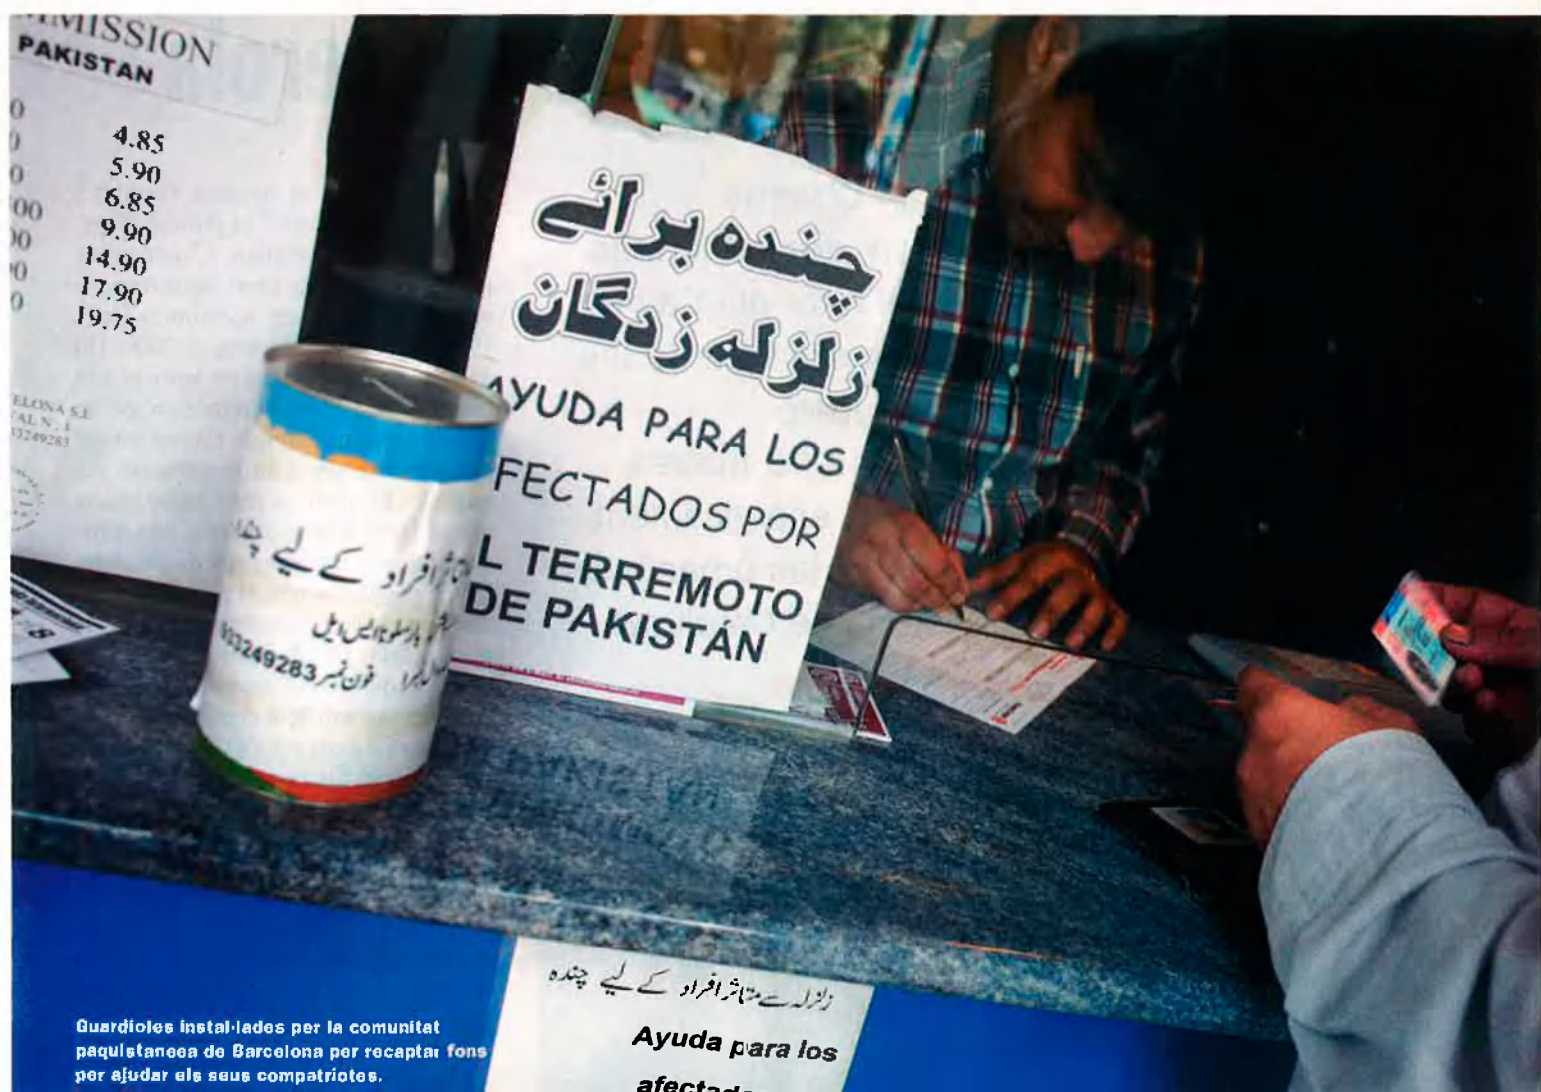 MMISSION
PAKISTAN
4.85
5.90
6.85
9.90
14.90
17.90
19.75
ELONA S.L
VAL N. 1
33249283
چندہ برائے
زلزلہ زدگان
AYUDA PARA LOS
FECTADOS POR
L TERREMOTO
DE PAKISTÁN
متاثر افراد کے لیے چندہ
بارسلونا ایس ایل
فون نمبر 933249283
زلزلہ سے متاثر افراد کے لیے چندہ
Ayuda para los
afectad
Guardioles instal·lades per la comunitat
paquistanesa de Barcelona per recaptar fons
per ajudar els seus compatriotes.